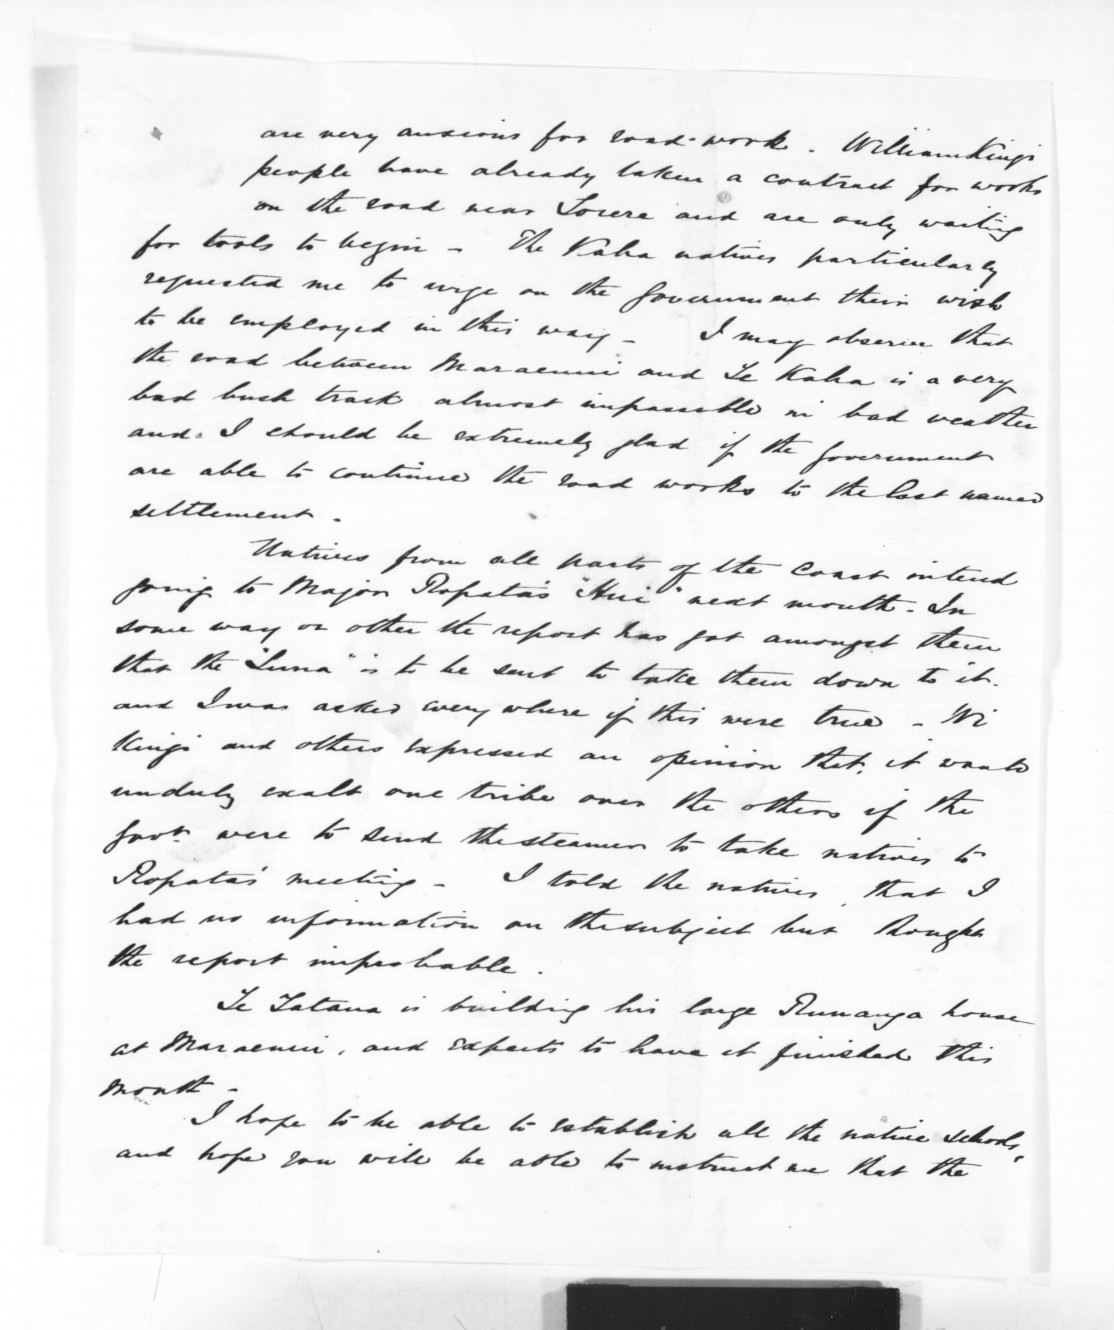 are very anxious for road-work. William King's
people have already taken a contract for works
on the road near Torere and are only waiting
for tools to begin - The Kaha natives particularly
requested me to urge on the government their wish
to be employed in this way - I may observe that
the road between Maraenui and Te Kaha is a very
bad bush track almost impassable in bad weather
and I should be extremely glad if the government
are able to continue the road works to the last named
settlement.
Natives from all parts of the Coast intend
going to Major Ropata's "Hui" next month. In
some way or other the report has got amongst them
that the "Luna" is to be sent to take them down to it.
and I was asked everywhere if this were true - Wi
Kingi and others expressed an opinion that, it would
unduly exalt one tribe over the others if the
Govt. were to send the steamer to take natives to
Ropata's meeting - I told the natives, that I
had no information on the subject but thought
the report improbable.
Te Tatana is building his large Runanga house
at Maraenui, and expects to have it finished this
month -
I hope to be able to establish all the native schools,
and hope you will be able to instruct me that the